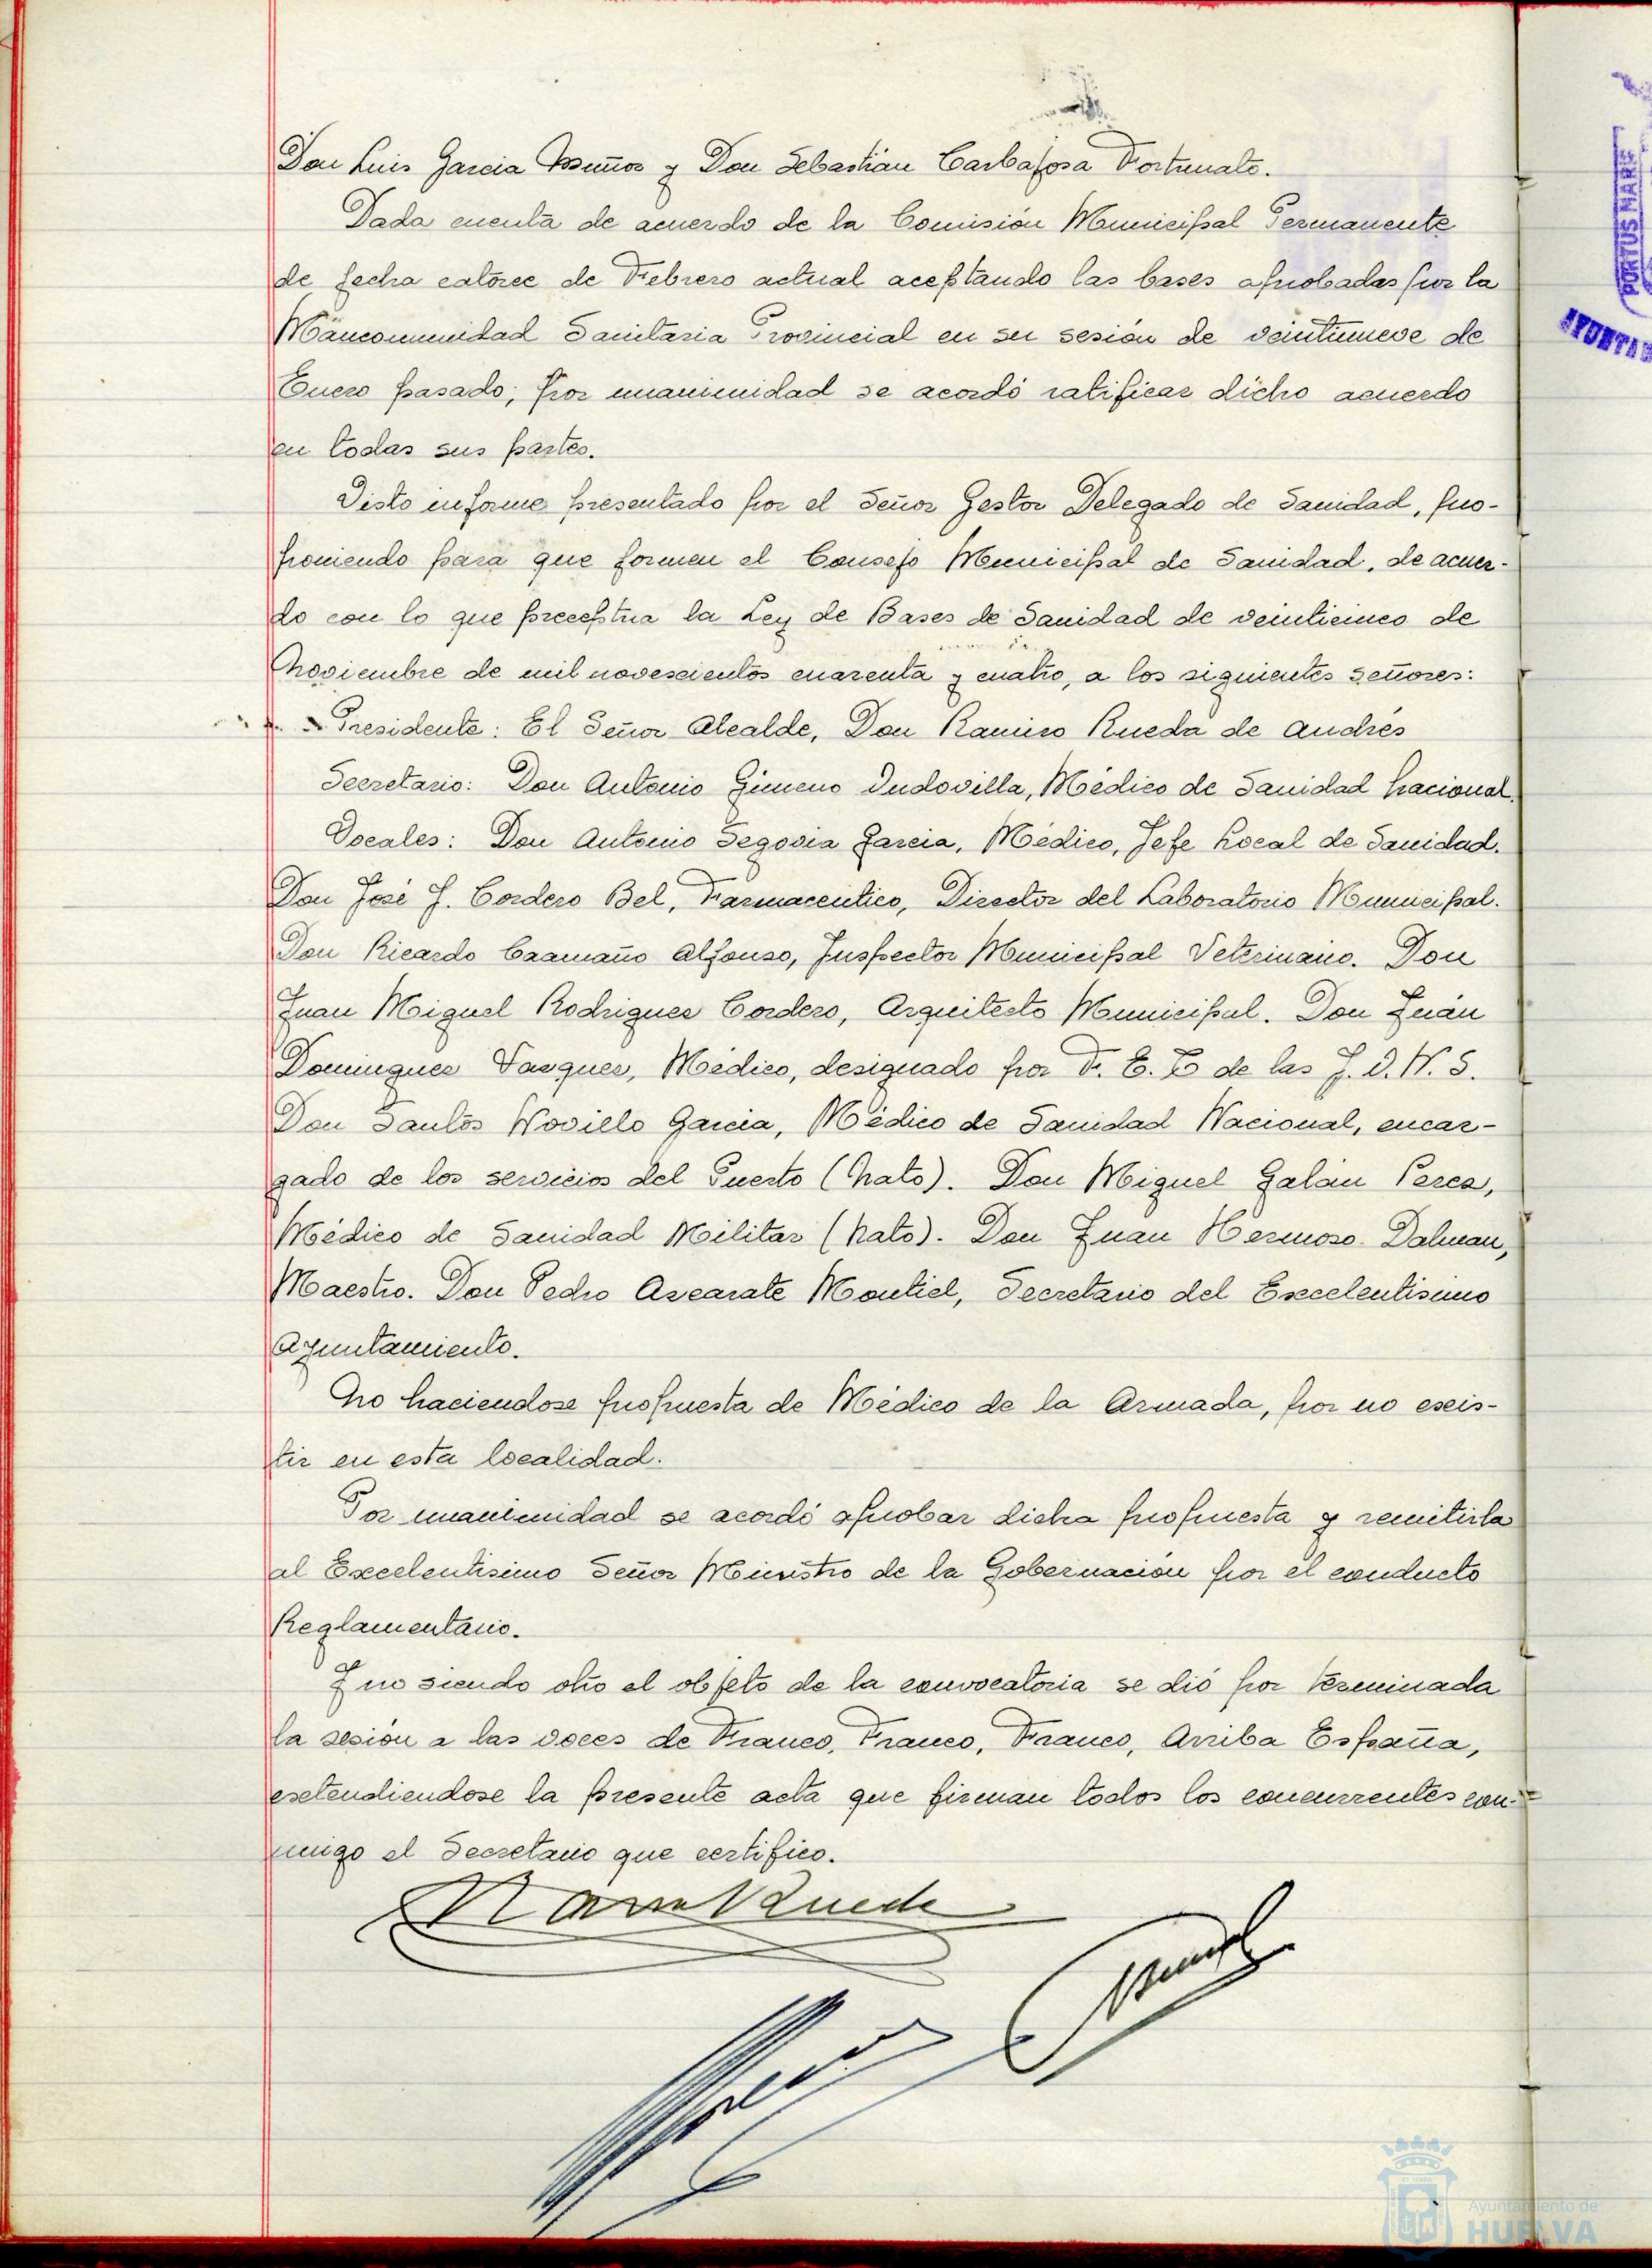 Don Luis Garcia Muñoz y Don Sebastián Carbajosa Fortunato.
Dada cuenta de acuerdo de la Comisión Municipal Permanente
de fecha catorce de Febrero actual aceptando las bases aprobadas por la
Mancomunidad Sanitaria Provincial en su sesión de veintinueve de
Enero pasado; por unanimidad se acordó ratificar dicho acuerdo
en todas sus partes.
Visto informe presentado por el Señor Gestor Delegado de Sanidad, pro-
poniendo para que formen el Consejo Municipal de Sanidad, de acuer-
do con lo que preceptua la Ley de Bases de Sanidad de veinticinco de
Noviembre de mil novescientos cuarenta y cuatro, a los siguientes señores:
Presidente: El Señor Alcalde, Don Ramiro Rueda de Andrés
Secretario: Don Antonio Gimeno Ondovilla, Médico de Sanidad Nacional.
Vocales: Don Antonio Segovia Garcia, Médico, Jefe Local de Sanidad.
Don José J. Cordero Bel, Farmaceutico, Director del Laboratorio Municipal.
Don Ricardo Caamaño Alfonso, Inspector Municipal Veterinario. Don
Juan Miguel Rodriguez Cordero, Arquitecto Municipal. Don Juán
Dominguez Vazquez, Médico, designado por F. E. T. de las J. O. N. S.
Don Santos Novillo Garcia, Médico de Sanidad Nacional, encar-
gado de los servicios del Puerto (Nato). Don Miguel Galán Perez,
Médico de Sanidad Militar (Nato). Don Juan Hermoso Dalman,
Maestro. Don Pedro Azcarate Montiel, Secretario del Excelentisimo
Ayuntamiento.
No haciendose propuesta de Médico de la Armada, por no exis-
tir en esta localidad.
Por unanimidad se acordó aprobar dicha propuesta y remitirla
al Excelentisimo Señor Ministro de la Gobernación por el conducto
Reglamentario.
Y no siendo otro el objeto de la convocatoria se dió por terminada
la sesión a las voces de Franco, Franco, Franco, Arriba España,
extendiendose la presente acta que firman todos los concurrentes con-
migo el Secretario que certifico.
Rueda
PORTUS MARIS
AYUNTA
Ayuntamiento de
HUELVA